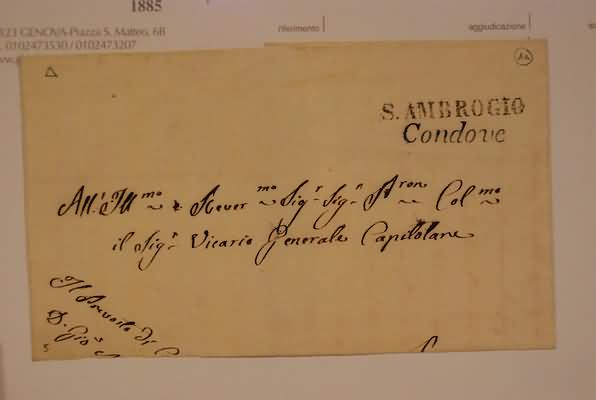 1885
123 GENOVA-Piazza S. Matteo, 6B
. 0102473530 / 0102473207
riferimento
aggiudicazione
S. AMBROGIO
Condove
All.' Ill.mo e Rever.mo Sig.r Sig.r P.ron Col.mo
il Sig.r Vicario Generale Capitolare
Il Prevosto di
D. Gio.